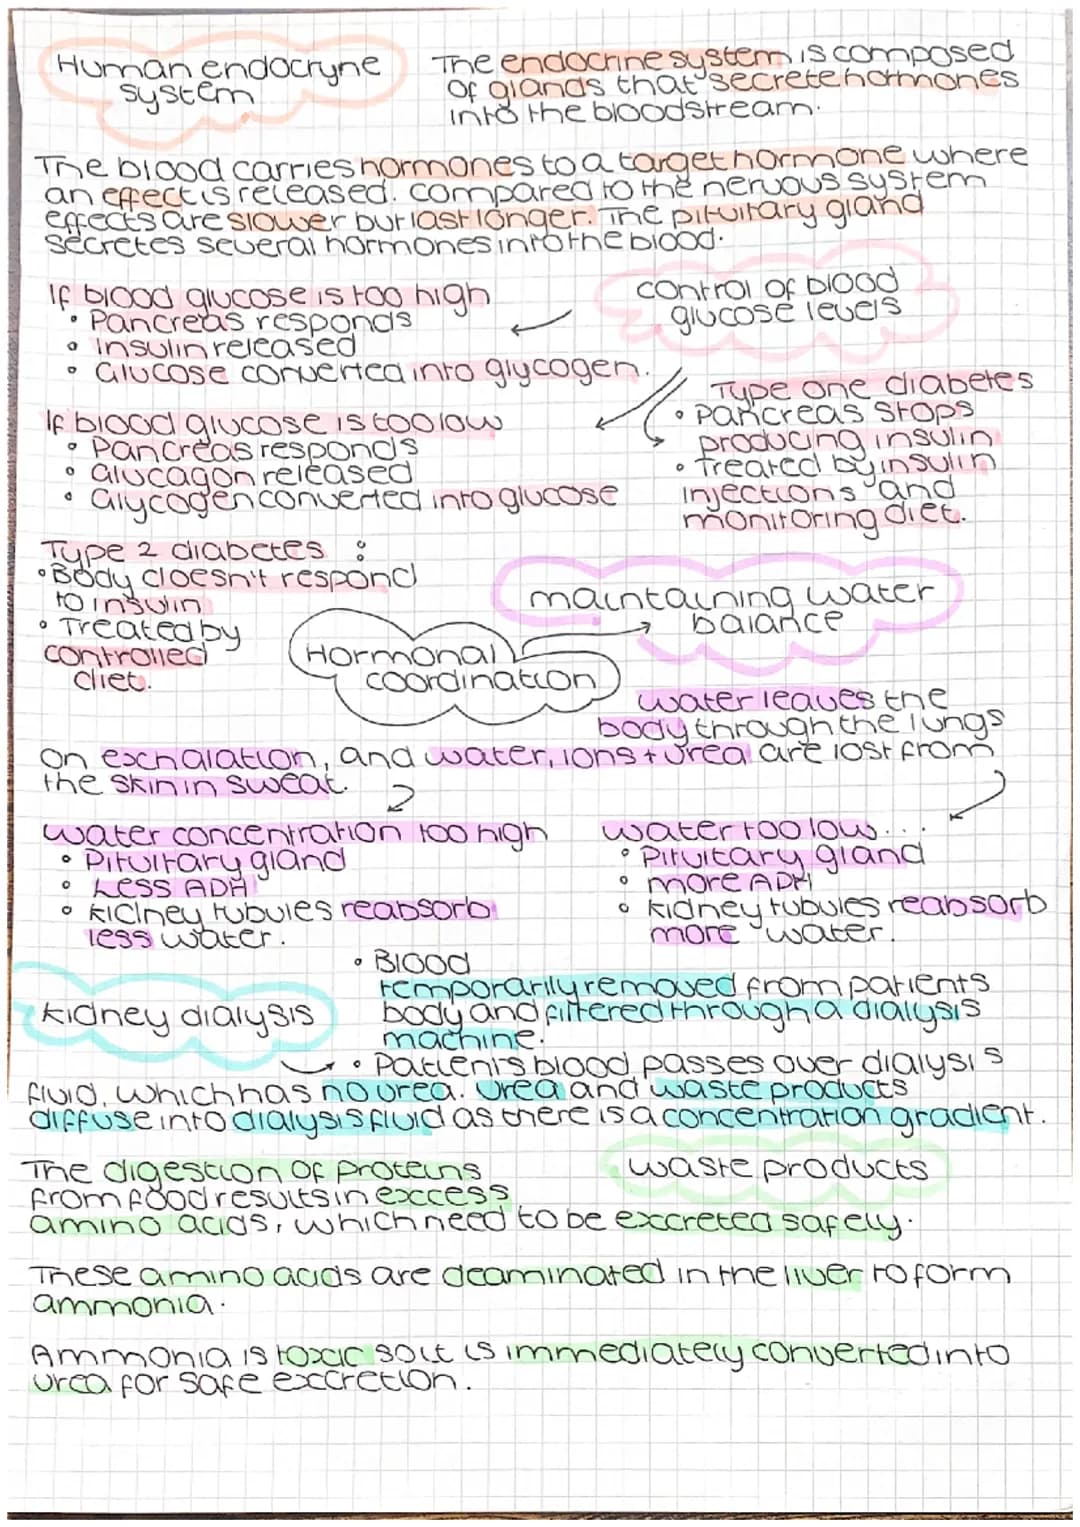 Human endocryne
system
The endocrine system is composed
of glands that secrete hormones
into the bloodstream.
The blood carries hormones to a target hormone where
an effect is released. compared to the nervous system
effects are slower but last longer. The pituitary gland
secretes several hormones into the blood.
control of blood
glucose levels
If blood glucose is too high
• Pancreas responds
• Insulin released
• Glucose converted into glycogen.
If blood glucose is too low
• Pancreas responds
• Glucagon released
• Glycogen converted into glucose
Type one diabetes
• Pancreas stops
producing insulin
• Treated by insulin
injections and
monitoring diet.
Type 2 diabetes :
• Body doesn't respond
to insulin
• Treated by
controlled
diet.
Hormonal
coordination
maintaining water
balance
water leaves the
body through the lungs
on exhalation, and water, ions + urea are lost from
the skin in sweat.
water concentration too high
• Pituitary gland
• Less ADH
• kidney tubules reabsorb
less water.
water too low...
• Pituitary gland
• more ADH
• kidney tubules reabsorb
more water.
kidney dialysis
• Blood
temporarily removed from patients
body and filtered through a dialysis
machine.
• Patients blood passes over dialysis
fluid, which has no urea. Urea and waste products
diffuse into dialysis fluid as there is a concentration gradient.
waste products
The digestion of proteins
from food results in excess
amino acids, which need to be excreted safely.
These amino acids are deaminated in the liver to form
ammonia.
Ammonia is toxic so it is immediately converted into
urea for safe excretion.